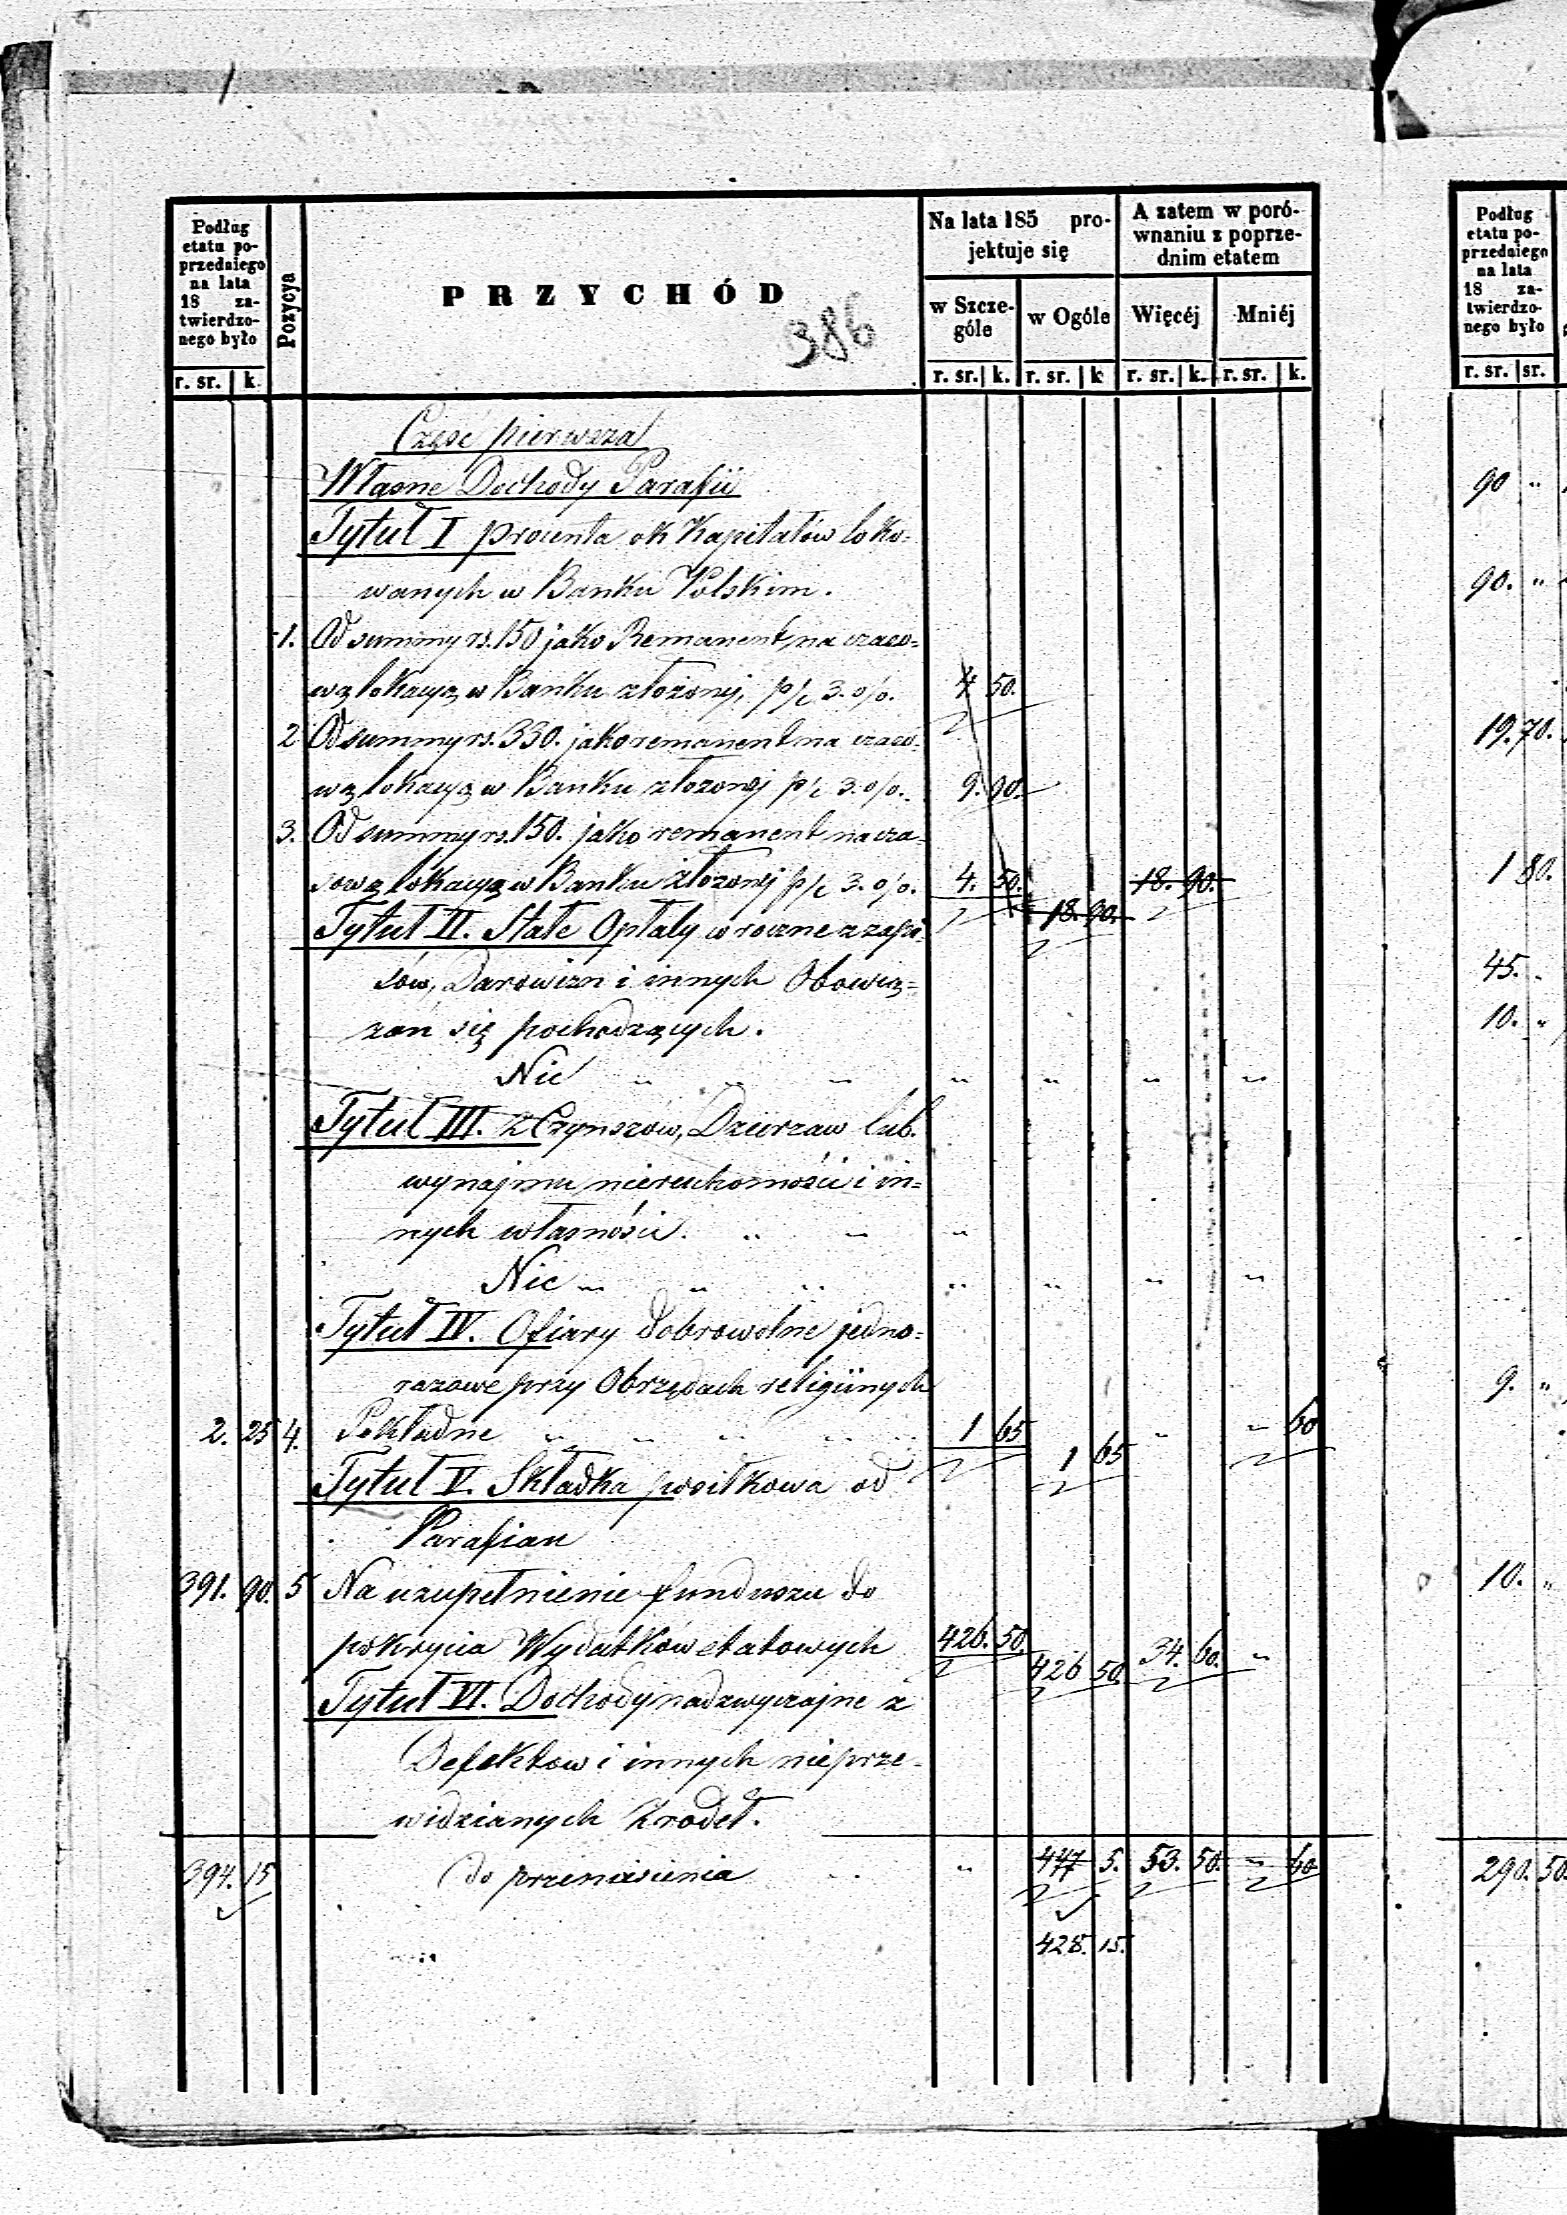 Podług etatu po-przedniego na lata 18 za-twierdzo-nego było
Pozycya
PRZYCHÓD
386
Na lata 185 pro-jektuje się
A zatem w poró-wnaniu z poprze-dnim etatem
w Szcze-góle
w Ogóle
Więcéj
Mniéj
r. sr. k. r. sr. k. r. sr. k r. sr. k. r. sr. k.
Część pierwsza
Własne Dochody Parafii
Tytuł I procenta ok Kapitałów loko-
wanych w Banku Polskim.
1. Od summy rs. 150 jako Remanent na czaso-
wą lokacyą w Banku złożonej, p/c 3. o/o. 4 50.
2 Od summy rs. 330. jako remanent na czaso-
wą lokacyą w Banku złożonej p/c 3. o/o. 9. 90.
3. Od summy rs. 150. jako remanent na cza-
sową lokacyą w Banku złożonej p/c 3. o/o. 4. 50. 18. 90.
18. 90.
Tytuł II. Stałe Opłaty w roczne z zapi-
sów, Darowizn i innych Obowią-
zań się pochodzących.
Nic " " " " " " "
Tytuł III. Z Czynszów, Dzierzaw lub
wynajmu nieruchomości i in-
nych własności. " " "
Nic " " " " " " "
Tytuł IV. Ofiary dobrowolne jedno-
razowe przy Obrzędach religijnych
2. 25 4. Pokładne " " " " " 1 65 " " 60
1 65
Tytuł V. Składka posiłkowa od
Parafian
391. 90. 5 Na uzupełnienie funduszu do
pokrycia Wydatków etatowych 426. 50. 426 50 34. 60. "
Tytuł VI. Dochody nadzwyczajne z
Defektow i innych nieprze-
widzianych Zrodeł.
394. 15 do przeniesienia " 447 5. 53. 50. " 60
428. 15.
Podług etatu po-przedniego na lata 18 za-twierdzo-nego było
r. sr. sr.
90 "
90. "
19. 70.
1 80.
45. "
10. "
9. "
10. "
290. 50.